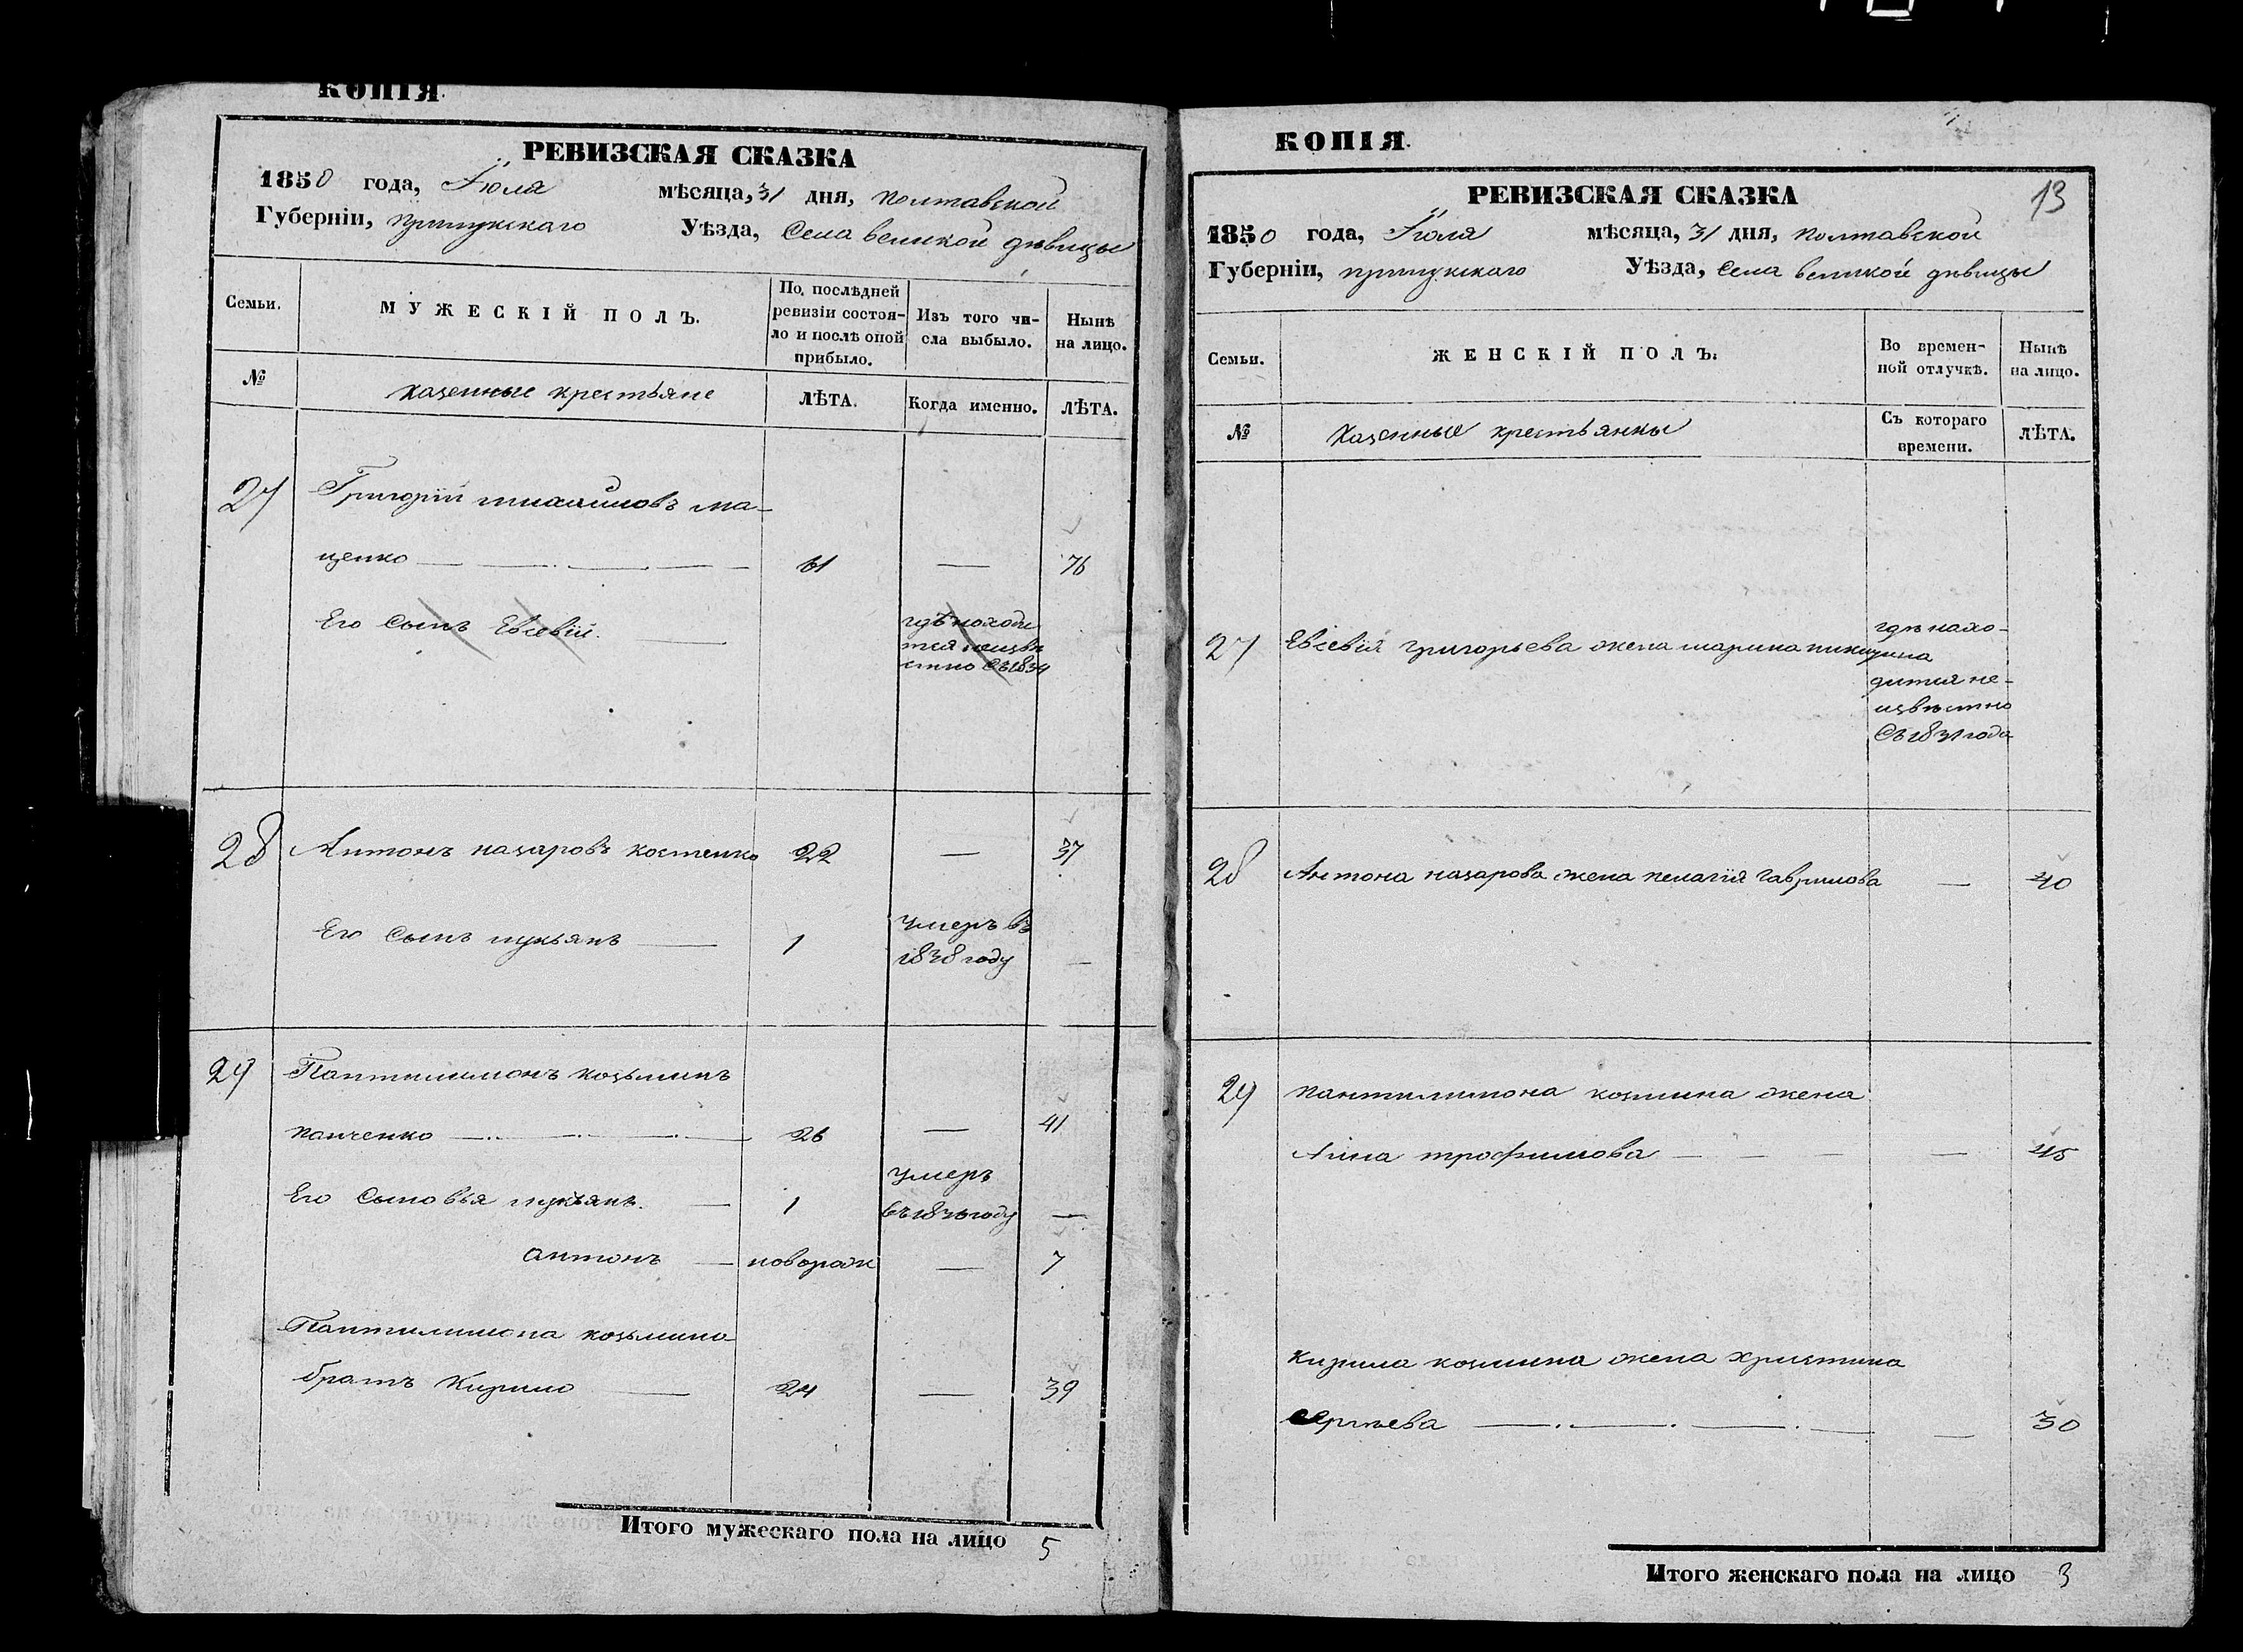 КОПІЯ.
РЕВИЗСКАЯ СКАЗКА
1850 года, Іюля мѣсяца, 31 дня, полтавской
Губерніи, прилукскаго Уѣзда, Села великой дѣвицы
Семьи.
МУЖЕСКІЙ ПОЛЪ.
По послѣдней
ревизіи состоя-
ло и послѣ оной
прибыло.
Изъ того чи-
сла выбыло.
Нынѣ
на лицо.
№
казенные крестьяне
ЛѢТА.
Когда именно.
ЛѢТА.
27 Григорій михайловъ ма-
щенко 61 — 76
Его Сынъ Евсевій. гдѣ находи
тся неизвѣ
стно съ 1834
28 Антонъ назаровъ костенко 22 — 37
Его Сынъ лукьянъ 1 умеръ въ
1838 году —
29 Пантилимонъ козьминъ
панченко 26 — 41
Его Сыновья лукьянъ. 1 умеръ
въ 1836 году —
антонъ новорож — 7
Пантилимона козьмина
братъ Кирило 24 — 39
Итого мужескаго пола на лицо 5
КОПІЯ.
13
РЕВИЗСКАЯ СКАЗКА
1850 года, Іюля мѣсяца, 31 дня, полтавской
Губерніи, прилукскаго Уѣзда, Села великой дѣвицы
Семьи.
ЖЕНСКІЙ ПОЛЪ.
Во времен-
ной отлучкѣ.
Нынѣ
на лицо.
№
Казенные крестьянки
Съ котораго
времени.
ЛѢТА.
27 Евсевія григорьева жена марина никитина
гдѣ нахо-
дится не-
извѣстно
Съ 1831 года
28 Антона назарова жена пелагія гаврилова — 40
29 пантилимона козмина жена
Анна трофимова — 45
Кирила козмина жена христина
сергѣева — 30
Итого женскаго пола на лицо 3